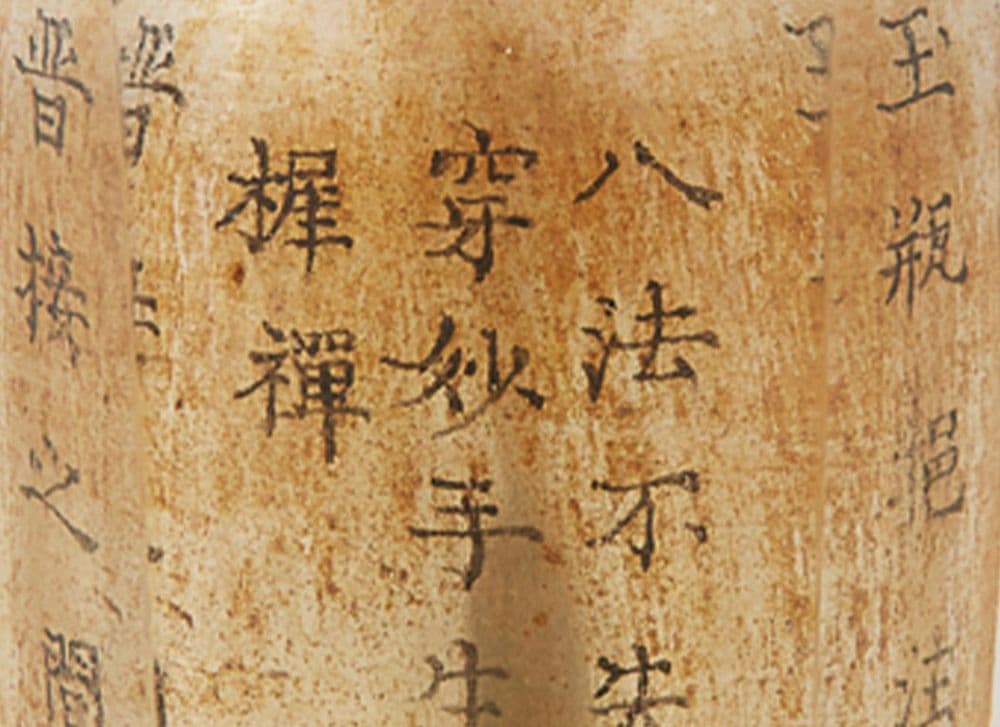 玉瓶挹
八法不
穿妙手
樨禪
晋接之間